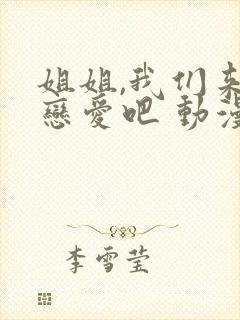 姐姐,我们来
戀愛吧 動漫
李雪莹